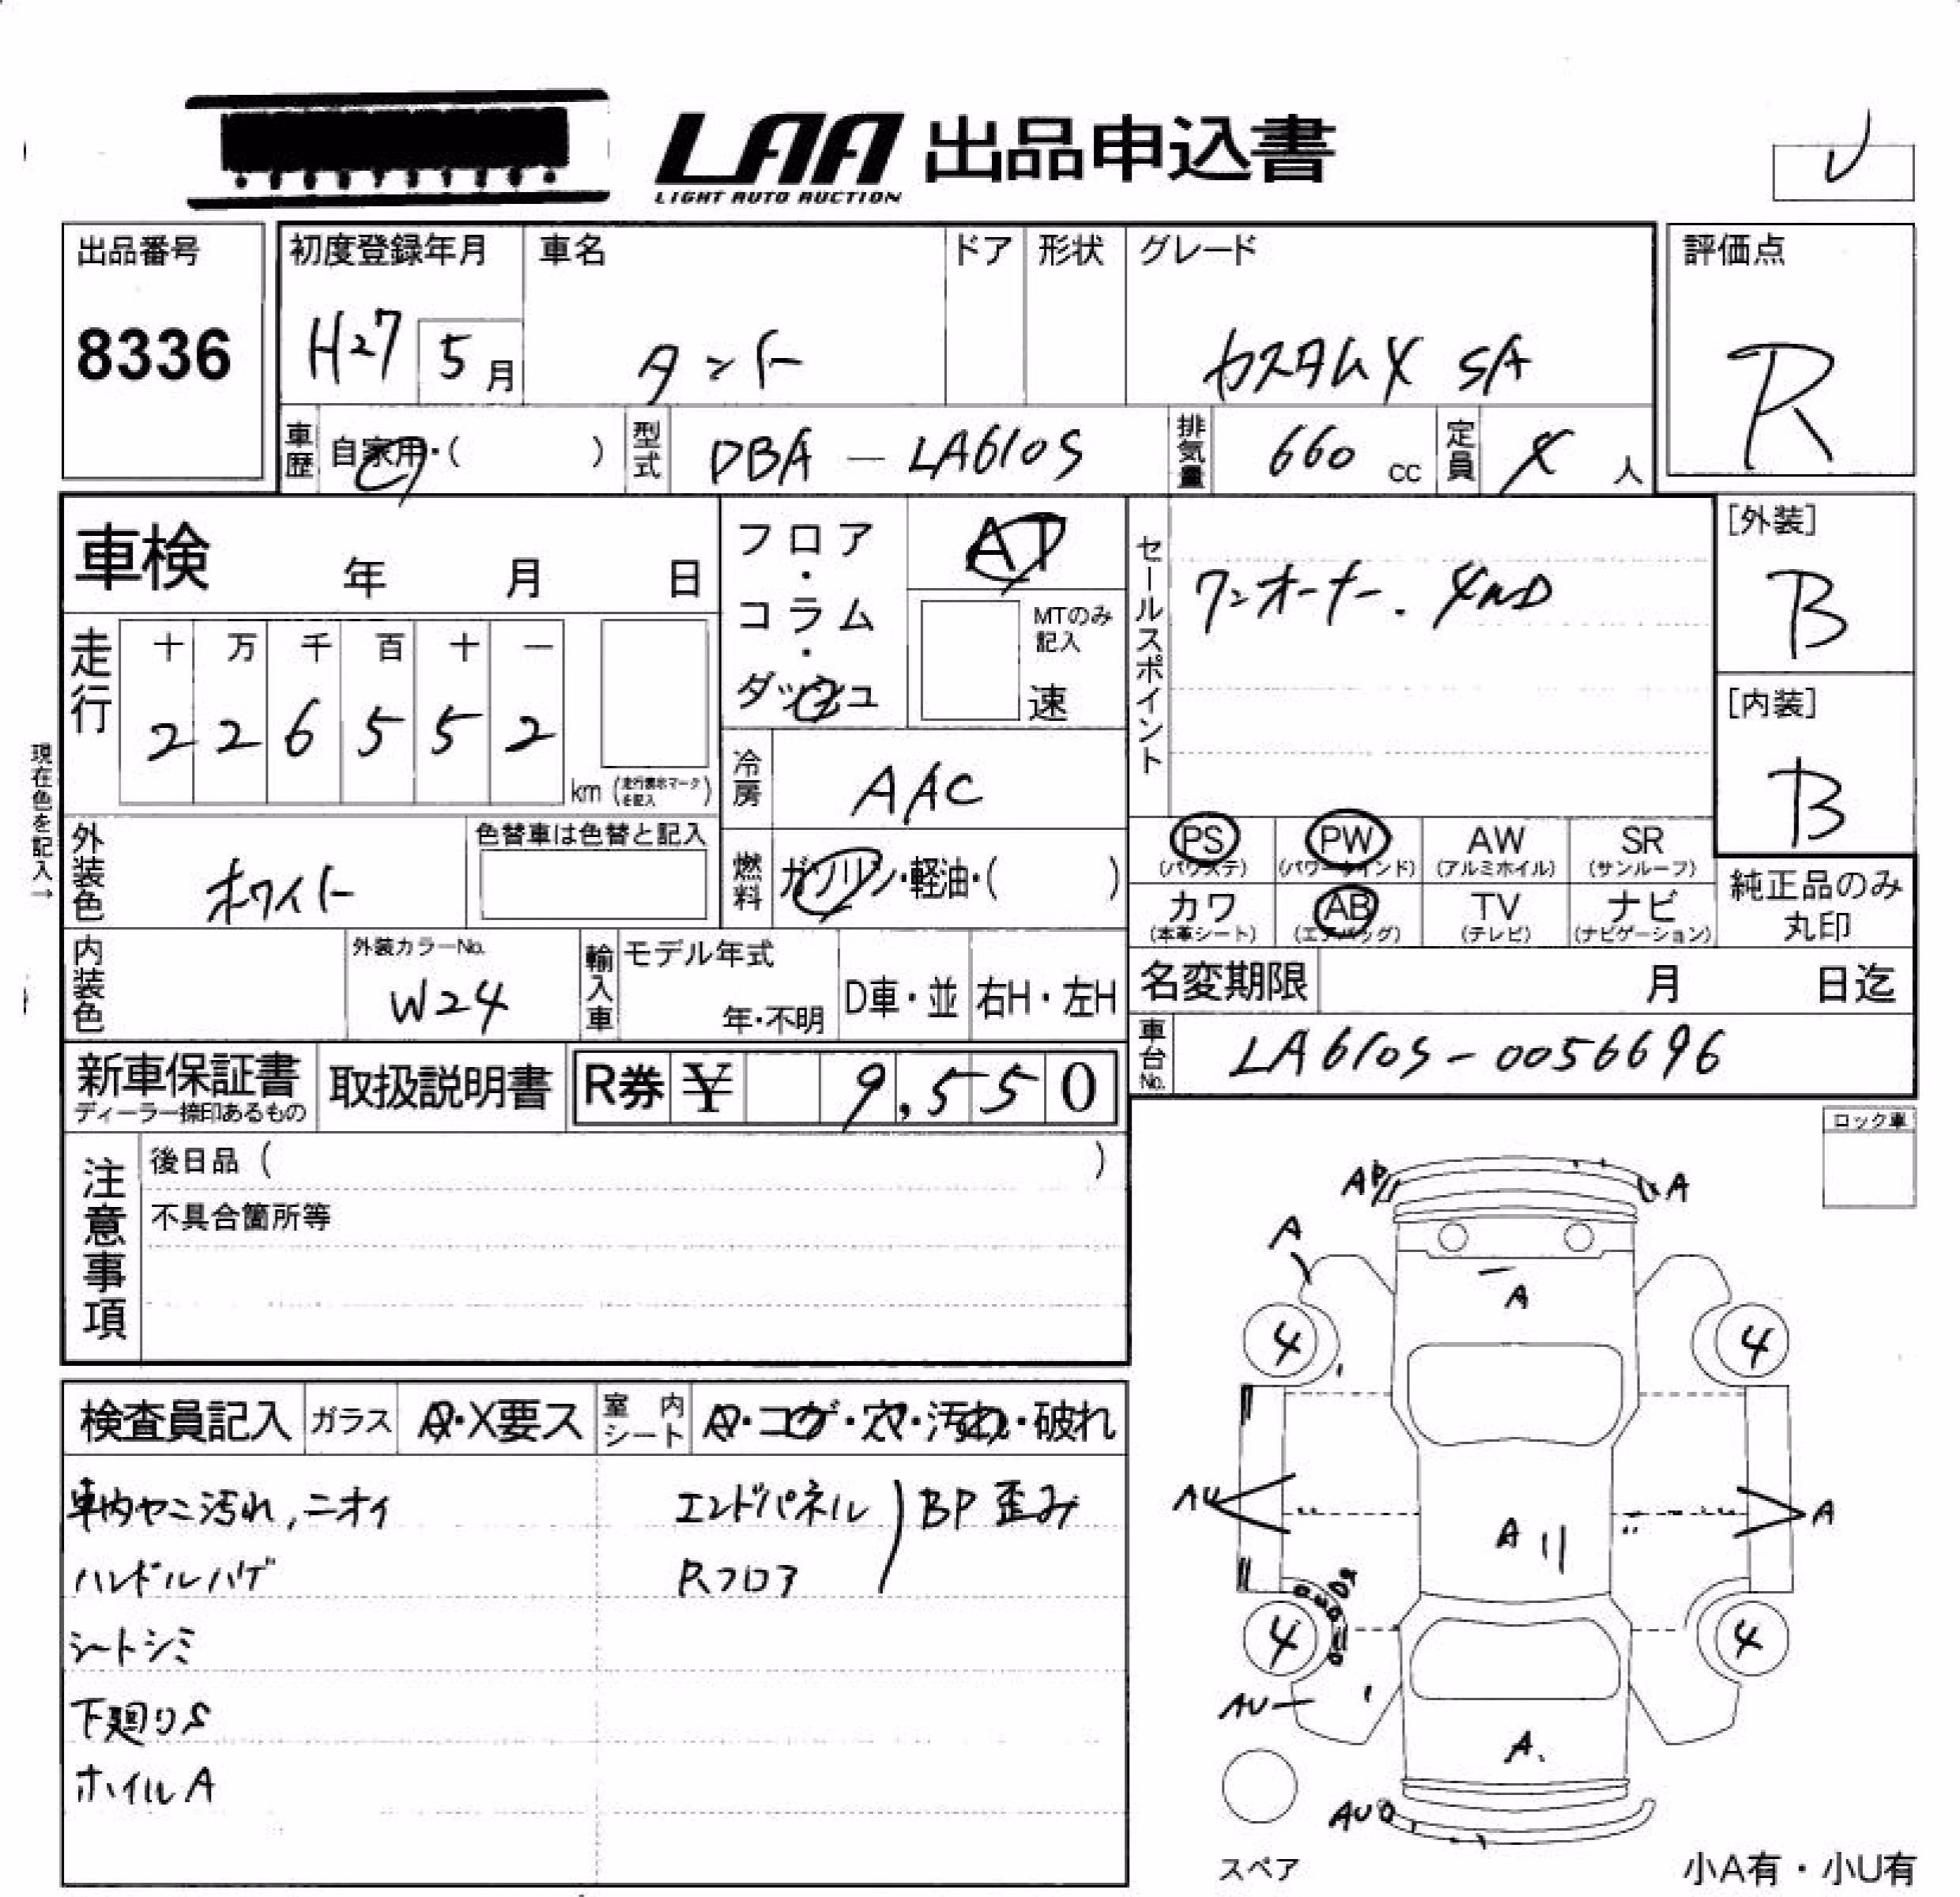 LAA 出品申込書
LIGHT AUTO AUCTION
出品番号
8336
初度登録年月
H27 5月
車名
タント
ドア
形状
グレード
カスタムX SA
評価点
R
車歴 自家用・( )
型式 DBA - LA610S
排気量 660 cc
定員 4 人
車検 年 月 日
フロア・コラム・ダッシュ
AT
MTのみ記入
速
セールスポイント
ワンオーナー. 4WD
[外装]
B
[内装]
B
走行
十 万 千 百 十 一
2 2 6 5 5 2
km (走行表示マークを記入)
現在色を記入→
冷房 AAC
外装色 ホワイト
色替車は色替と記入
燃料 ガソリン・軽油・( )
PS (パワステ)
PW (パワーウインド)
AW (アルミホイル)
SR (サンルーフ)
カワ (本革シート)
AB (エアバッグ)
TV (テレビ)
ナビ (ナビゲーション)
純正品のみ
丸印
内装色
外装カラーNo.
W24
輸入車
モデル年式
年・不明
D車・並
右H・左H
名変期限 月 日迄
車台No. LA610S-0056696
新車保証書
ディーラー捺印あるもの
取扱説明書
R券 ¥ 9,550
ロック車
注意事項
後日品 ( )
不具合箇所等
検査員記入
ガラス
A・X要ス
室内シート
A・コゲ・穴・汚れ・破れ
車内ヤニ汚れ,ニオイ
ハンドルハゲ
シートシミ
下廻りS
ホイルA
エンドパネル
Rフロア
BP 歪み
AP
A
A
A
4
4
AU
A
A
4
4
AU
A.
AU
スペア
小A有・小U有